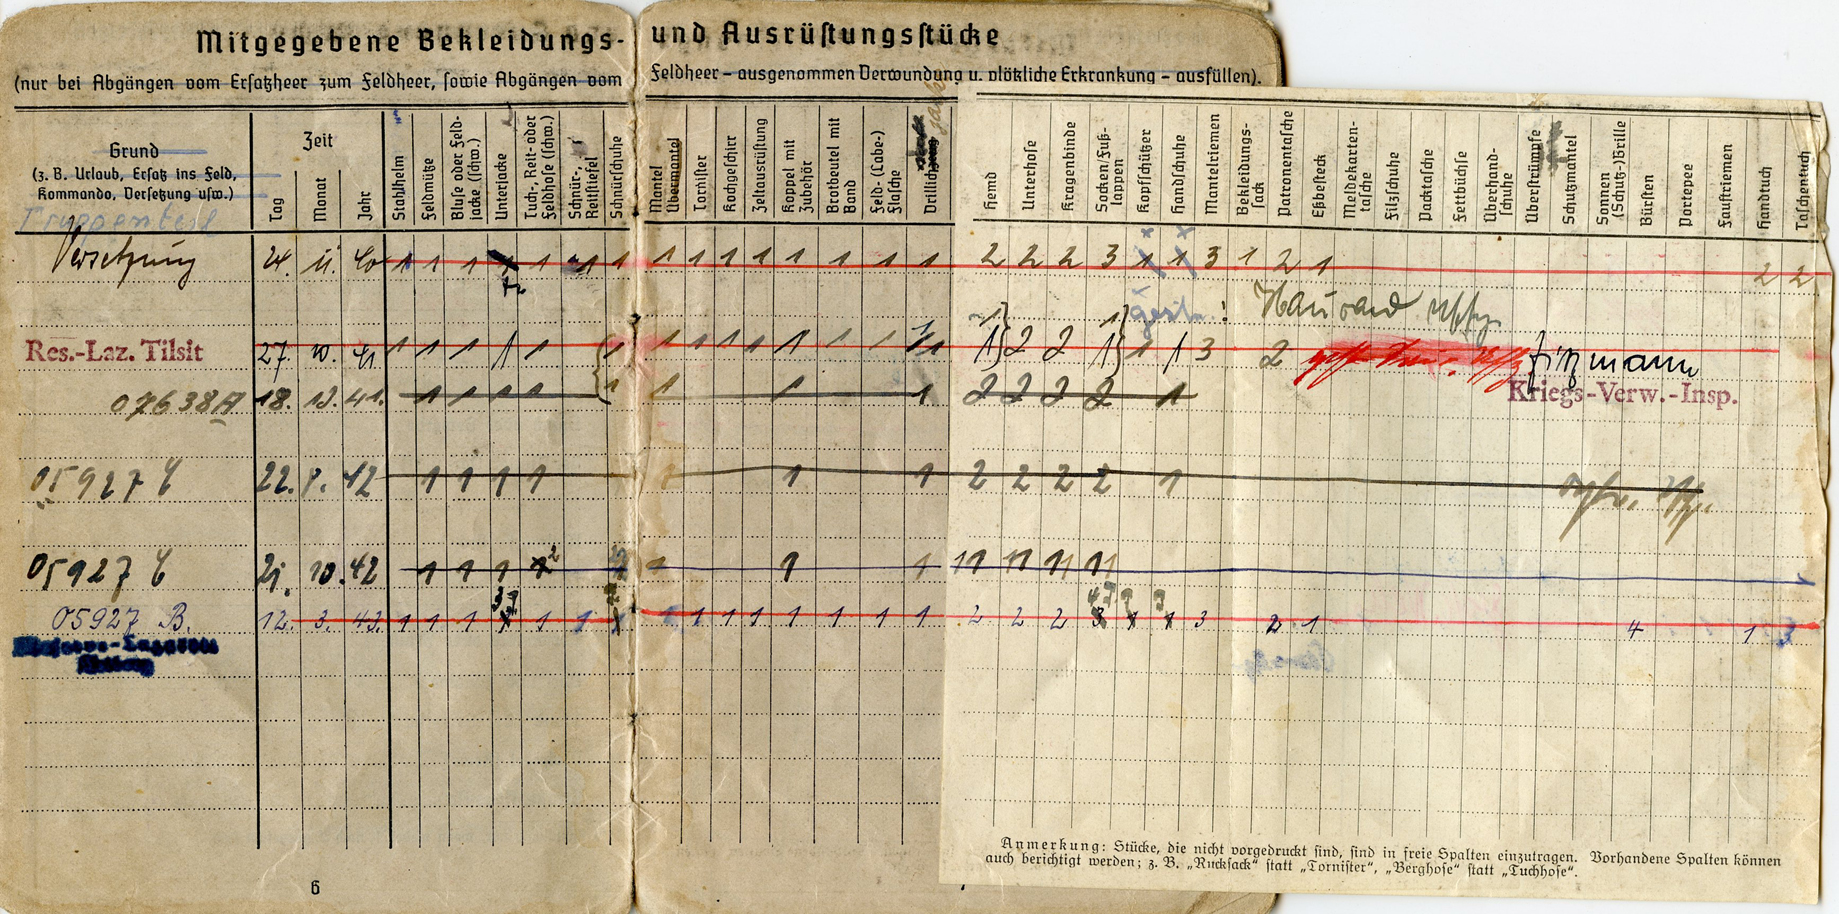 Mitgegebene Bekleidungs- und Ausrüstungsstücke
(nur bei Abgängen vom Ersatzheer zum Feldheer, sowie Abgängen vom Feldheer – ausgenommen Verwundung u. plötzliche Erkrankung – ausfüllen).
Grund
(z. B. Urlaub, Ersatz ins Feld,
Kommando, Versetzung usw.)
Truppenteil
Zeit
Tag
Monat
Jahr
Stahlhelm
Feldmütze
Bluse oder Feld-
jacke (schw.)
Unterjacke
Tuch-, Reit- oder
Feldhose (schw.)
Schnür-,
Reitstiefel
Schnürschuhe
Mantel
Übermantel
Tornister
Kochgeschirr
Zeltausrüstung
Koppel mit
Zubehör
Brotbeutel mit
Band
Feld- (Labe-)
flasche
Drillich
Hemd
Unterhose
Kragenbinde
Socken/Fuß-
lappen
Kopfschützer
Handschuhe
Mantelriemen
Bekleidungs-
sack
Patronentasche
Eßbesteck
Meldekarten-
tasche
Filzschuhe
Packtasche
Fettbüchse
Überhand-
schuhe
Überstrümpfe
Schutzmantel
Sonnen
(Schutz-)Brille
Bürsten
Portepee
Faustriemen
Handtuch
Taschentuch
Versetzung 24. 11. 40 1 1 1 1 1 1 1 1 1 1 1 1 1 1 1 2 2 2 3 1 1 3 1 2 1 2 2
Res.-Laz. Tilsit 27. 10. 41 1 1 1 1 1 1 1 1 1 1 1 1 1 1 1 2 2 1 1 1 3 2
07638A 18. 12. 41. 1 1 1 1 1 1 1 1 2 2 2 2 1
Kriegs-Verw.-Insp.
05927 22. 8. 42 1 1 1 1 1 1 1 2 2 2 2 1
05927 21. 10. 42 1 1 1 1 1 1 11 11 11 11
05927 B. 12. 3. 43. 1 1 1 1 1 1 1 1 1 1 1 1 1 1 1 2 2 2 3 1 1 3 2 1 4 1 3
Anmerkung: Stücke, die nicht vorgedruckt sind, sind in freie Spalten einzutragen. Vorhandene Spalten können
auch berichtigt werden; z. B. „Rucksack“ statt „Tornister“, „Berghose“ statt „Tuchhose“.
6